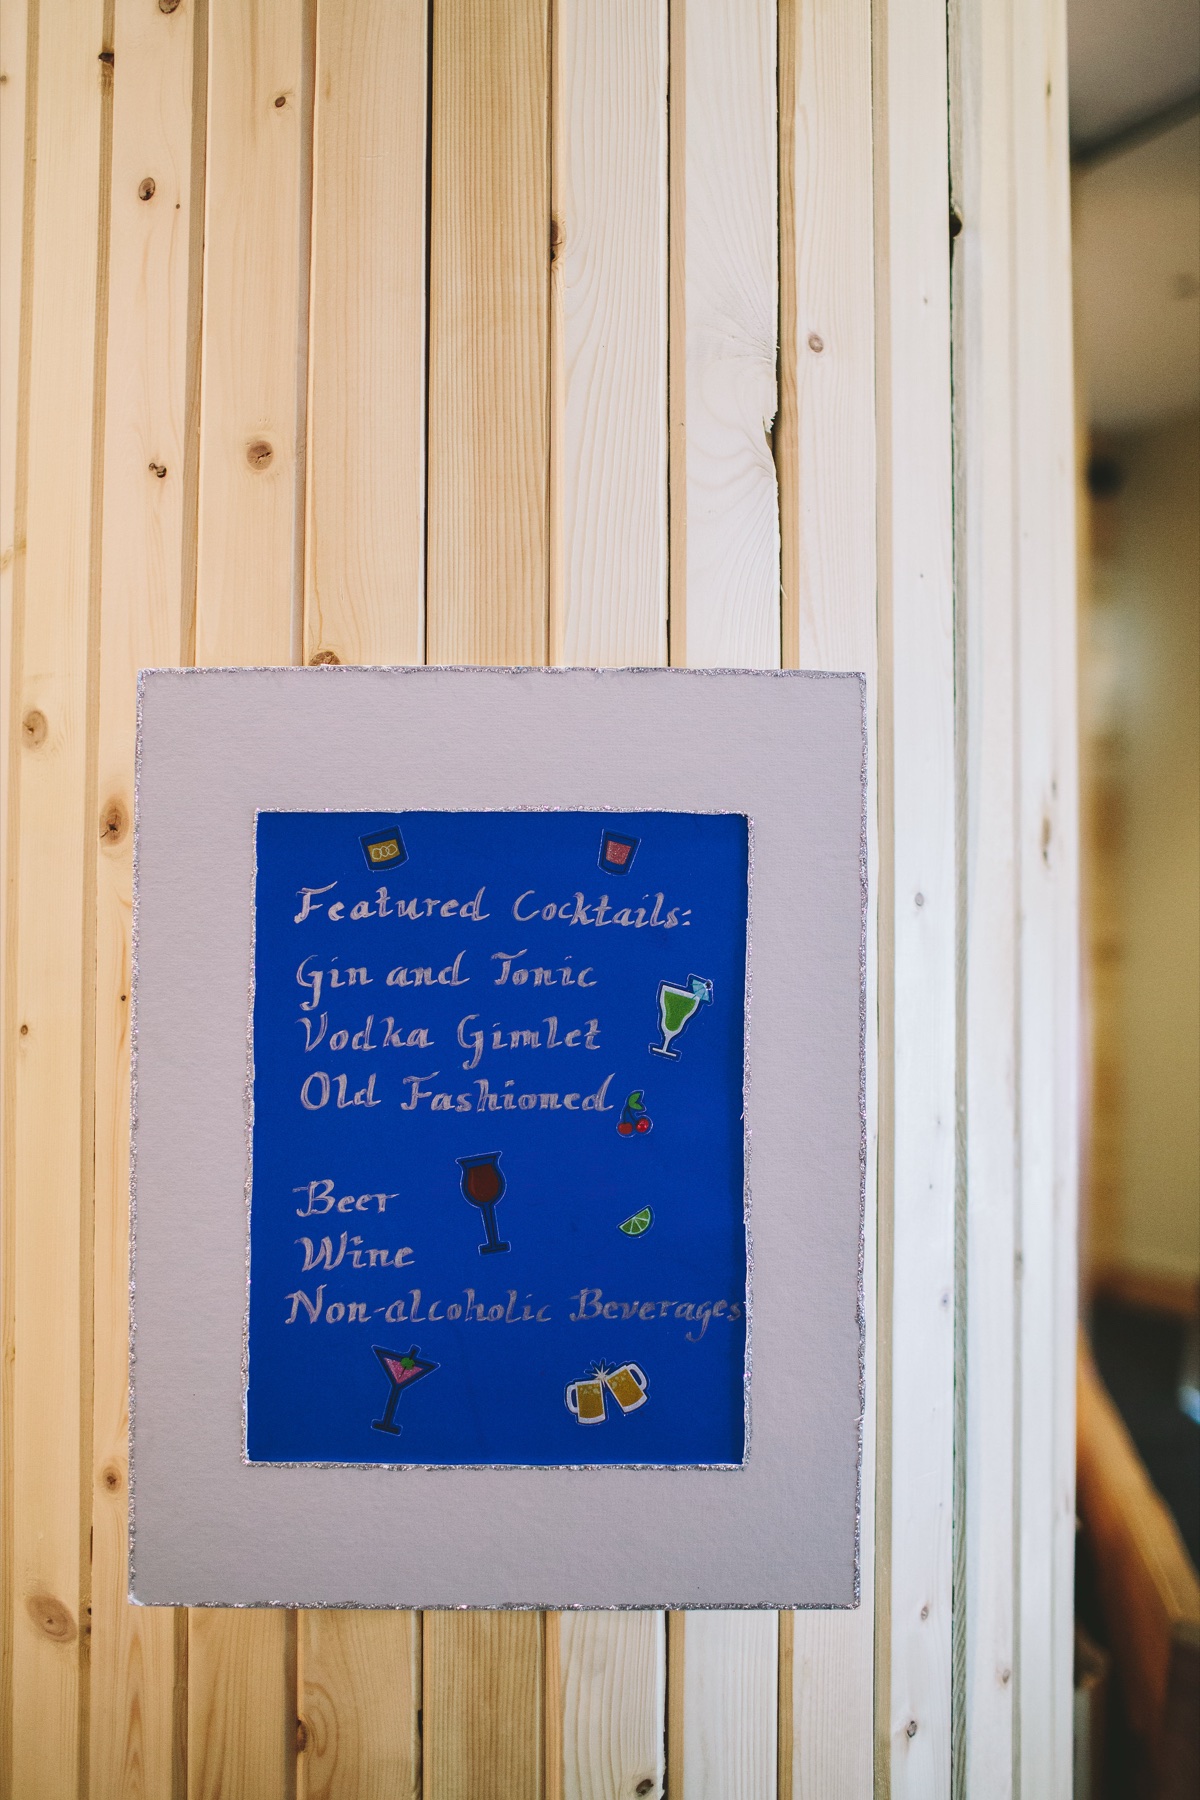 Featured Cocktails:
Gin and Tonic
Vodka Gimlet
Old Fashioned
Beer
Wine
Non-alcoholic Beverages